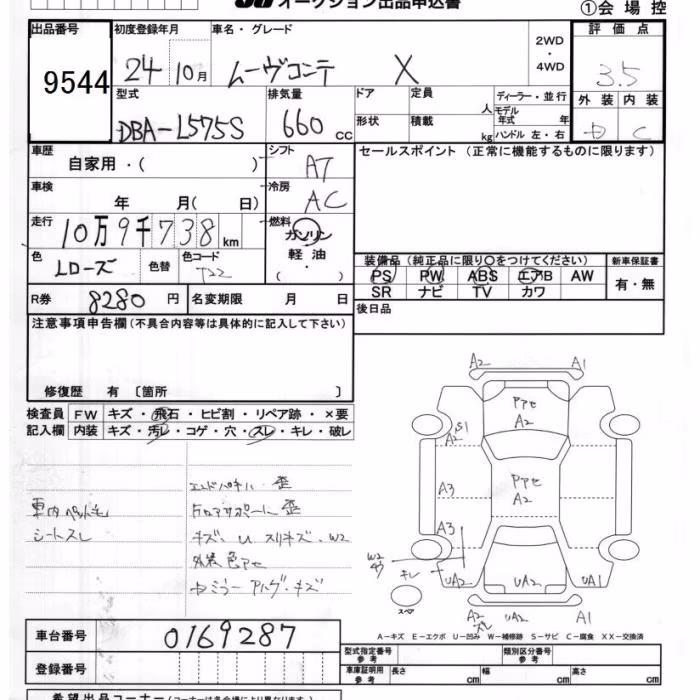 オークション出品申込書
①会 場 控
出品番号 9544
初度登録年月 24 10月
車名・グレード ムーヴコンテ X
2WD・4WD
評 価 点 3.5
外 装 内 装
C
型式 DBA-L575S
排気量 660 cc
ドア 定員 人
形状 積載 kg
ディーラー・並行
モデル年式 年
ハンドル 左・右
車歴 自家用・( )
シフト AT
セールスポイント (正常に機能するものに限ります)
車検 年 月( 日)
冷房 AC
走行 10万9千738km
燃料 ガソリン
軽 油
・
( )
色 Lローズ 色替 色コード T22
装備品 (純正品に限り○をつけてください) 新車保証書
PS PW ABS エアB AW
SR ナビ TV カワ
有・無
R券 8280 円 名変期限 月 日
後日品
注意事項申告欄 (不具合内容等は具体的に記入して下さい)
修復歴 有 〔箇所 〕
検査員記入欄
FW キズ・飛石・ヒビ割・リペア跡・×要
内装 キズ・汚レ・コゲ・穴・スレ・キレ・破レ
エンドパネル 歪
車内ペット毛
シートスレ
コアサポート 歪
キズ、U スリキズ、W2
外装 色アセ
ミラー キズ
A2 A1
アセ
A2
S1
A2
アセ
A2
A3
A3
W2
キレ
UA2 UA2 UA1
スペア
A2 UA2 A1
A−キズ E−エクボ U−凹み W−補修跡 S−サビ C−腐食 XX−交換済
車台番号 0169287
登録番号
型式指定番号 参考 類別区分番号 参考
車庫証明用 参考 長さ cm 幅 cm 高さ cm
希望出品コーナー (コーナーは各会場により異なります)